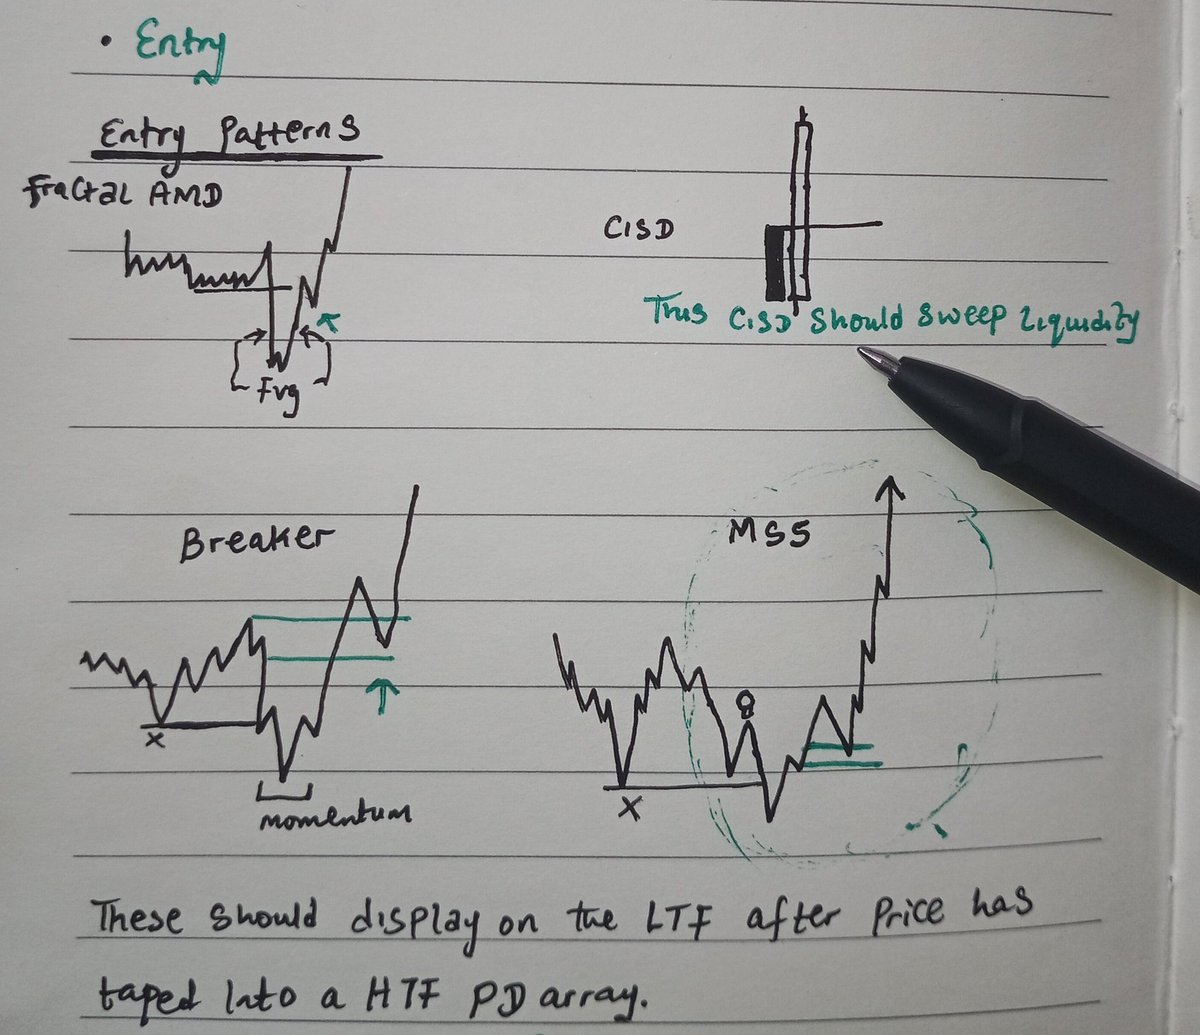 • Entry
Entry Patterns
Fractal AMD
Fvg
CISD
This CISD Should Sweep Liquidity
Breaker
x
momentum
MSS
8
X
These Should display on the LTF after Price has
taped Into a HTF PD array.